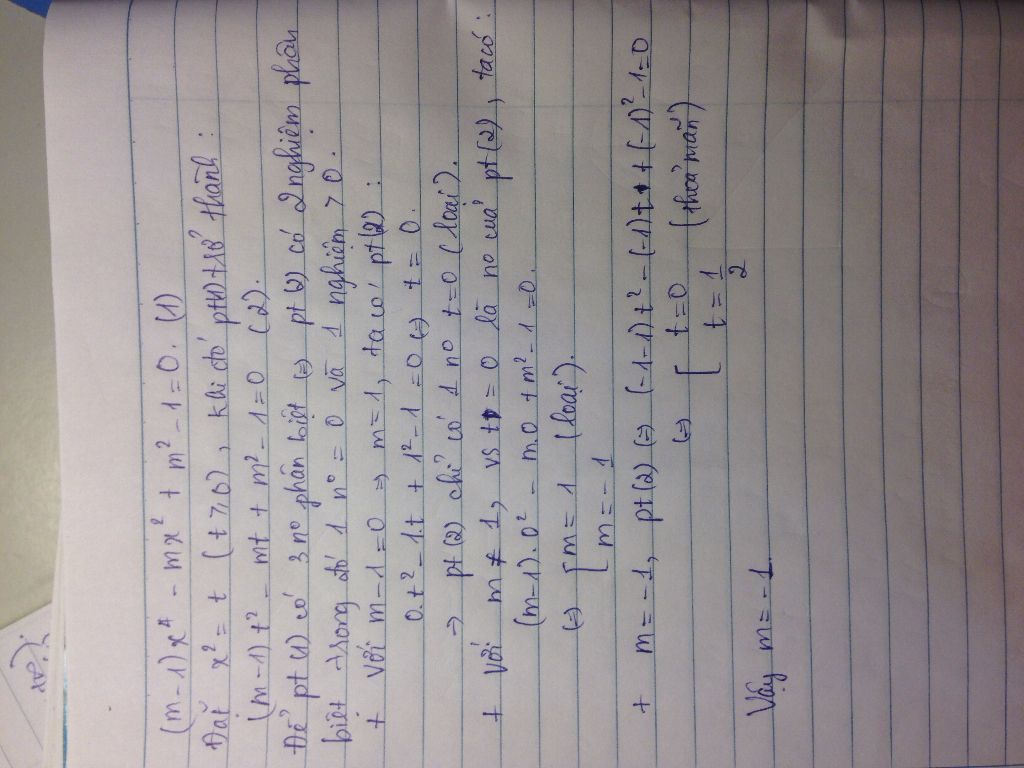 (m-1)x⁴ - mx² + m² - 1 = 0. (1)
Đặt x² = t (t ≥ 0), khi đó pt(1) trở thành:
(m-1)t² - mt + m² - 1 = 0 (2).
Để pt (1) có 3 n° phân biệt (=) pt (2) có 2 nghiệm phân
biệt trong đó 1 n° = 0 và 1 nghiệm > 0.
+ Với m-1 = 0 => m = 1, ta có pt(2):
0.t² - 1t + 1² - 1 = 0 (=) t = 0.
→ pt (2) chỉ có 1 n° t = 0 (loại).
+ Với m ≠ 1, vs t = 0 là n° của pt (2), ta có:
(m-1).0² - m.0 + m² - 1 = 0.
(=) [ m = 1 (loại).
m = -1
+ m = -1, pt(2) (=) (-1-1)t² - (-1)t + (-1)² - 1 = 0
(=) [ t = 0 (thoả mãn)
t = 1/2
Vậy m = -1.